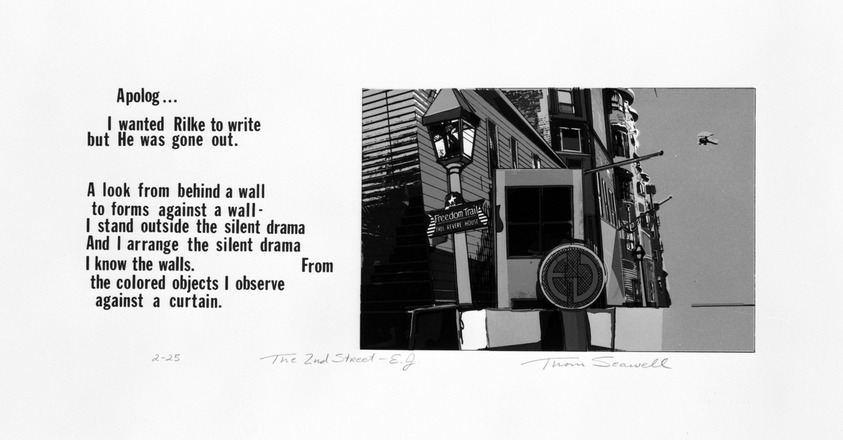 Apolog...
I wanted Rilke to write
but He was gone out.
A look from behind a wall
to forms against a wall-
I stand outside the silent drama
And I arrange the silent drama
I know the walls. From
the colored objects I observe
against a curtain.
Freedom Trail
PAUL REVERE HOUSE
2-25
The 2nd Street - E.J
Thom Seawell